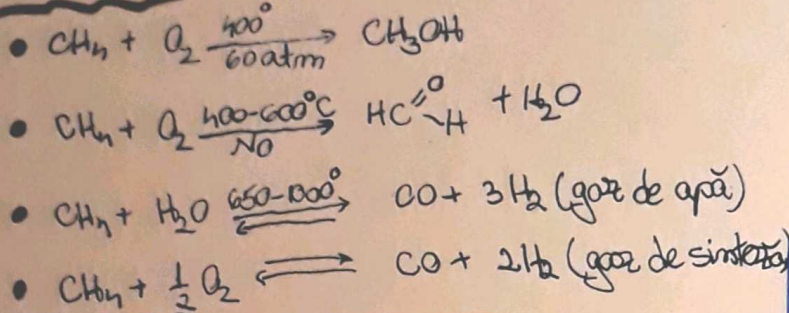 • CH₄ + O₂ —400°/60atm→ CH₃OH
• CH₄ + O₂ —400-600°C/NO→ HC(=O)-H + H₂O
• CH₄ + H₂O ⇌ 650-1000° CO + 3H₂ (gaz de apă)
• CH₄ + 1/2 O₂ ⇌ CO + 2H₂ (gaz de sinteză)